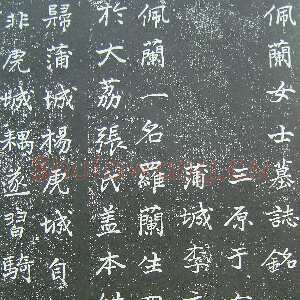 佩蘭女士墓誌銘
三原于
蒲城李
佩蘭一名羅蘭生
於大荔張氏盖本
歸蒲城楊虎城自
非虎城耦遂習騎